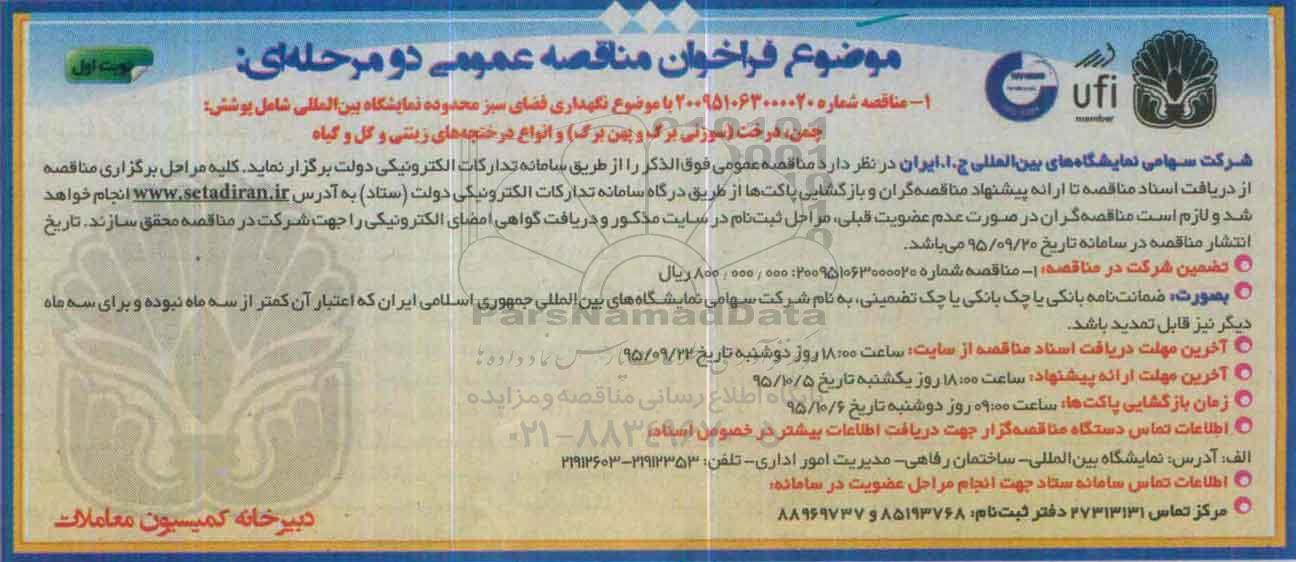 موضوع فراخوان مناقصه عمومی دو مرحله‌ای:
نوبت اول
ufi
member
۱- مناقصه شماره ۲۰۰۹۵۱۰۶۳۰۰۰۰۲۰ با موضوع نگهداری فضای سبز محدوده نمایشگاه بین‌المللی شامل پوشش:
چمن، درخت (سوزنی برگ و پهن برگ) و انواع درختچه‌های زینتی و گل و گیاه
شرکت سهامی نمایشگاه‌های بین‌المللی ج.ا.ایران در نظر دارد مناقصه عمومی فوق‌الذکر را از طریق سامانه تدارکات الکترونیکی دولت برگزار نماید. کلیه مراحل برگزاری مناقصه
از دریافت اسناد مناقصه تا ارائه پیشنهاد مناقصه‌گران و بازگشایی پاکت‌ها از طریق درگاه سامانه تدارکات الکترونیکی دولت (ستاد) به آدرس www.setadiran.ir انجام خواهد
شد و لازم است مناقصه‌گران در صورت عدم عضویت قبلی، مراحل ثبت‌نام در سایت مذکور و دریافت گواهی امضای الکترونیکی را جهت شرکت در مناقصه محقق سازند. تاریخ
انتشار مناقصه در سامانه تاریخ ۹۵/۰۹/۲۰ می‌باشد.
تضمین شرکت در مناقصه: ۱- مناقصه شماره ۲۰۰۹۵۱۰۶۳۰۰۰۰۲۰: ۸۰۰,۰۰۰,۰۰۰ ریال
بصورت: ضمانت‌نامه بانکی یا چک بانکی یا چک تضمینی، به نام شرکت سهامی نمایشگاه‌های بین‌المللی جمهوری اسلامی ایران که اعتبار آن کمتر از سه ماه نبوده و برای سه ماه
دیگر نیز قابل تمدید باشد.
ParsNamadData
آخرین مهلت دریافت اسناد مناقصه از سایت: ساعت ۱۸:۰۰ روز دوشنبه تاریخ ۹۵/۰۹/۲۲
آخرین مهلت ارائه پیشنهاد: ساعت ۱۸:۰۰ روز یکشنبه تاریخ ۹۵/۱۰/۵
پایگاه اطلاع رسانی مناقصه و مزایده
زمان بازگشایی پاکت‌ها: ساعت ۰۹:۰۰ روز دوشنبه تاریخ ۹۵/۱۰/۶
اطلاعات تماس دستگاه مناقصه‌گزار جهت دریافت اطلاعات بیشتر در خصوص اسناد:
الف: آدرس: نمایشگاه بین‌المللی- ساختمان رفاهی- مدیریت امور اداری- تلفن: ۲۱۹۱۲۳۵۳-۲۱۹۱۲۶۰۳
اطلاعات تماس سامانه ستاد جهت انجام مراحل عضویت در سامانه:
مرکز تماس ۲۷۳۱۳۱۳۱ دفتر ثبت‌نام: ۸۵۱۹۳۷۶۸ و ۸۸۹۶۹۷۳۷
دبیرخانه کمیسیون معاملات